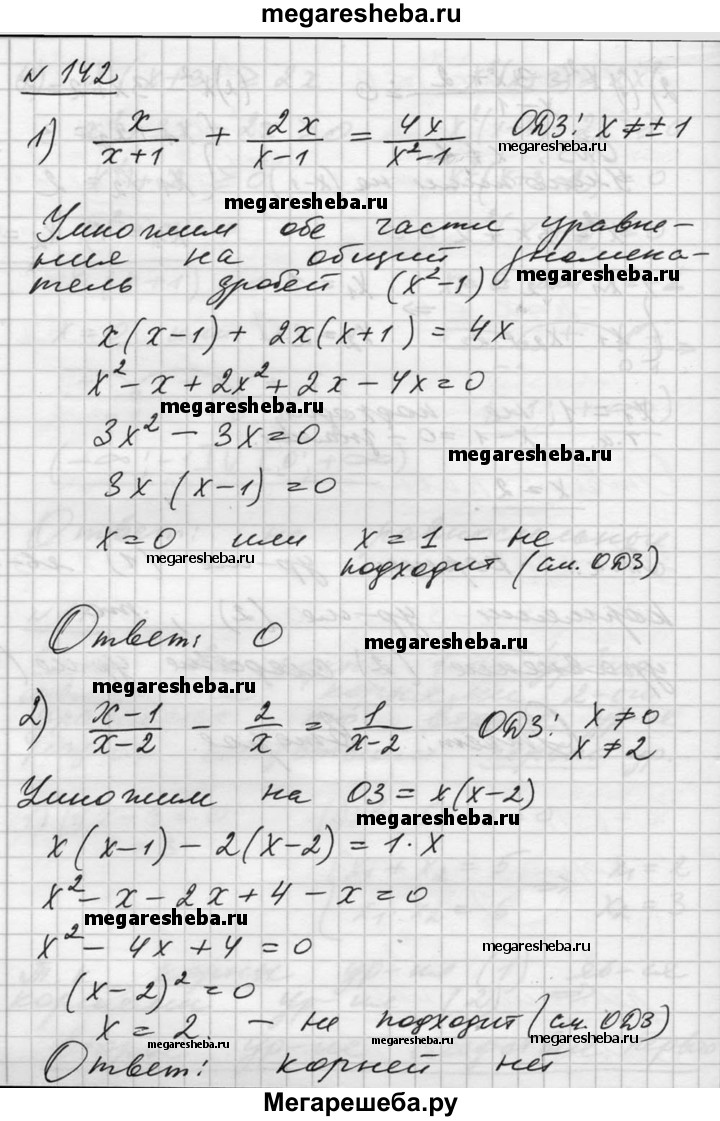 megaresheba.ru
№ 142
1) x/(x+1) + 2x/(x-1) = 4x/(x²-1) ОДЗ! x ≠ ± 1
megaresheba.ru
megaresheba.ru
Умножим обе части уравне-
ния на общий знамена-
megaresheba.ru
тель дробей (x²-1)
x(x-1) + 2x(x+1) = 4x
x² - x + 2x² + 2x - 4x = 0
megaresheba.ru
3x² - 3x = 0
megaresheba.ru
3x (x-1) = 0
x = 0 или x = 1 - не
megaresheba.ru
подходит (см. ОДЗ)
Ответ: 0
megaresheba.ru
megaresheba.ru
2) (x-1)/(x-2) - 2/x = 1/(x-2) ОДЗ! x ≠ 0
x ≠ 2
Умножим на ОЗ = x(x-2)
megaresheba.ru
x(x-1) - 2(x-2) = 1·x
x² - x - 2x + 4 - x = 0
megaresheba.ru
x² - 4x + 4 = 0
megaresheba.ru
(x-2)² = 0
x = 2 - не подходит (см. ОДЗ)
megaresheba.ru
megaresheba.ru
megaresheba.ru
Ответ: корней нет
Мегарешеба.ру